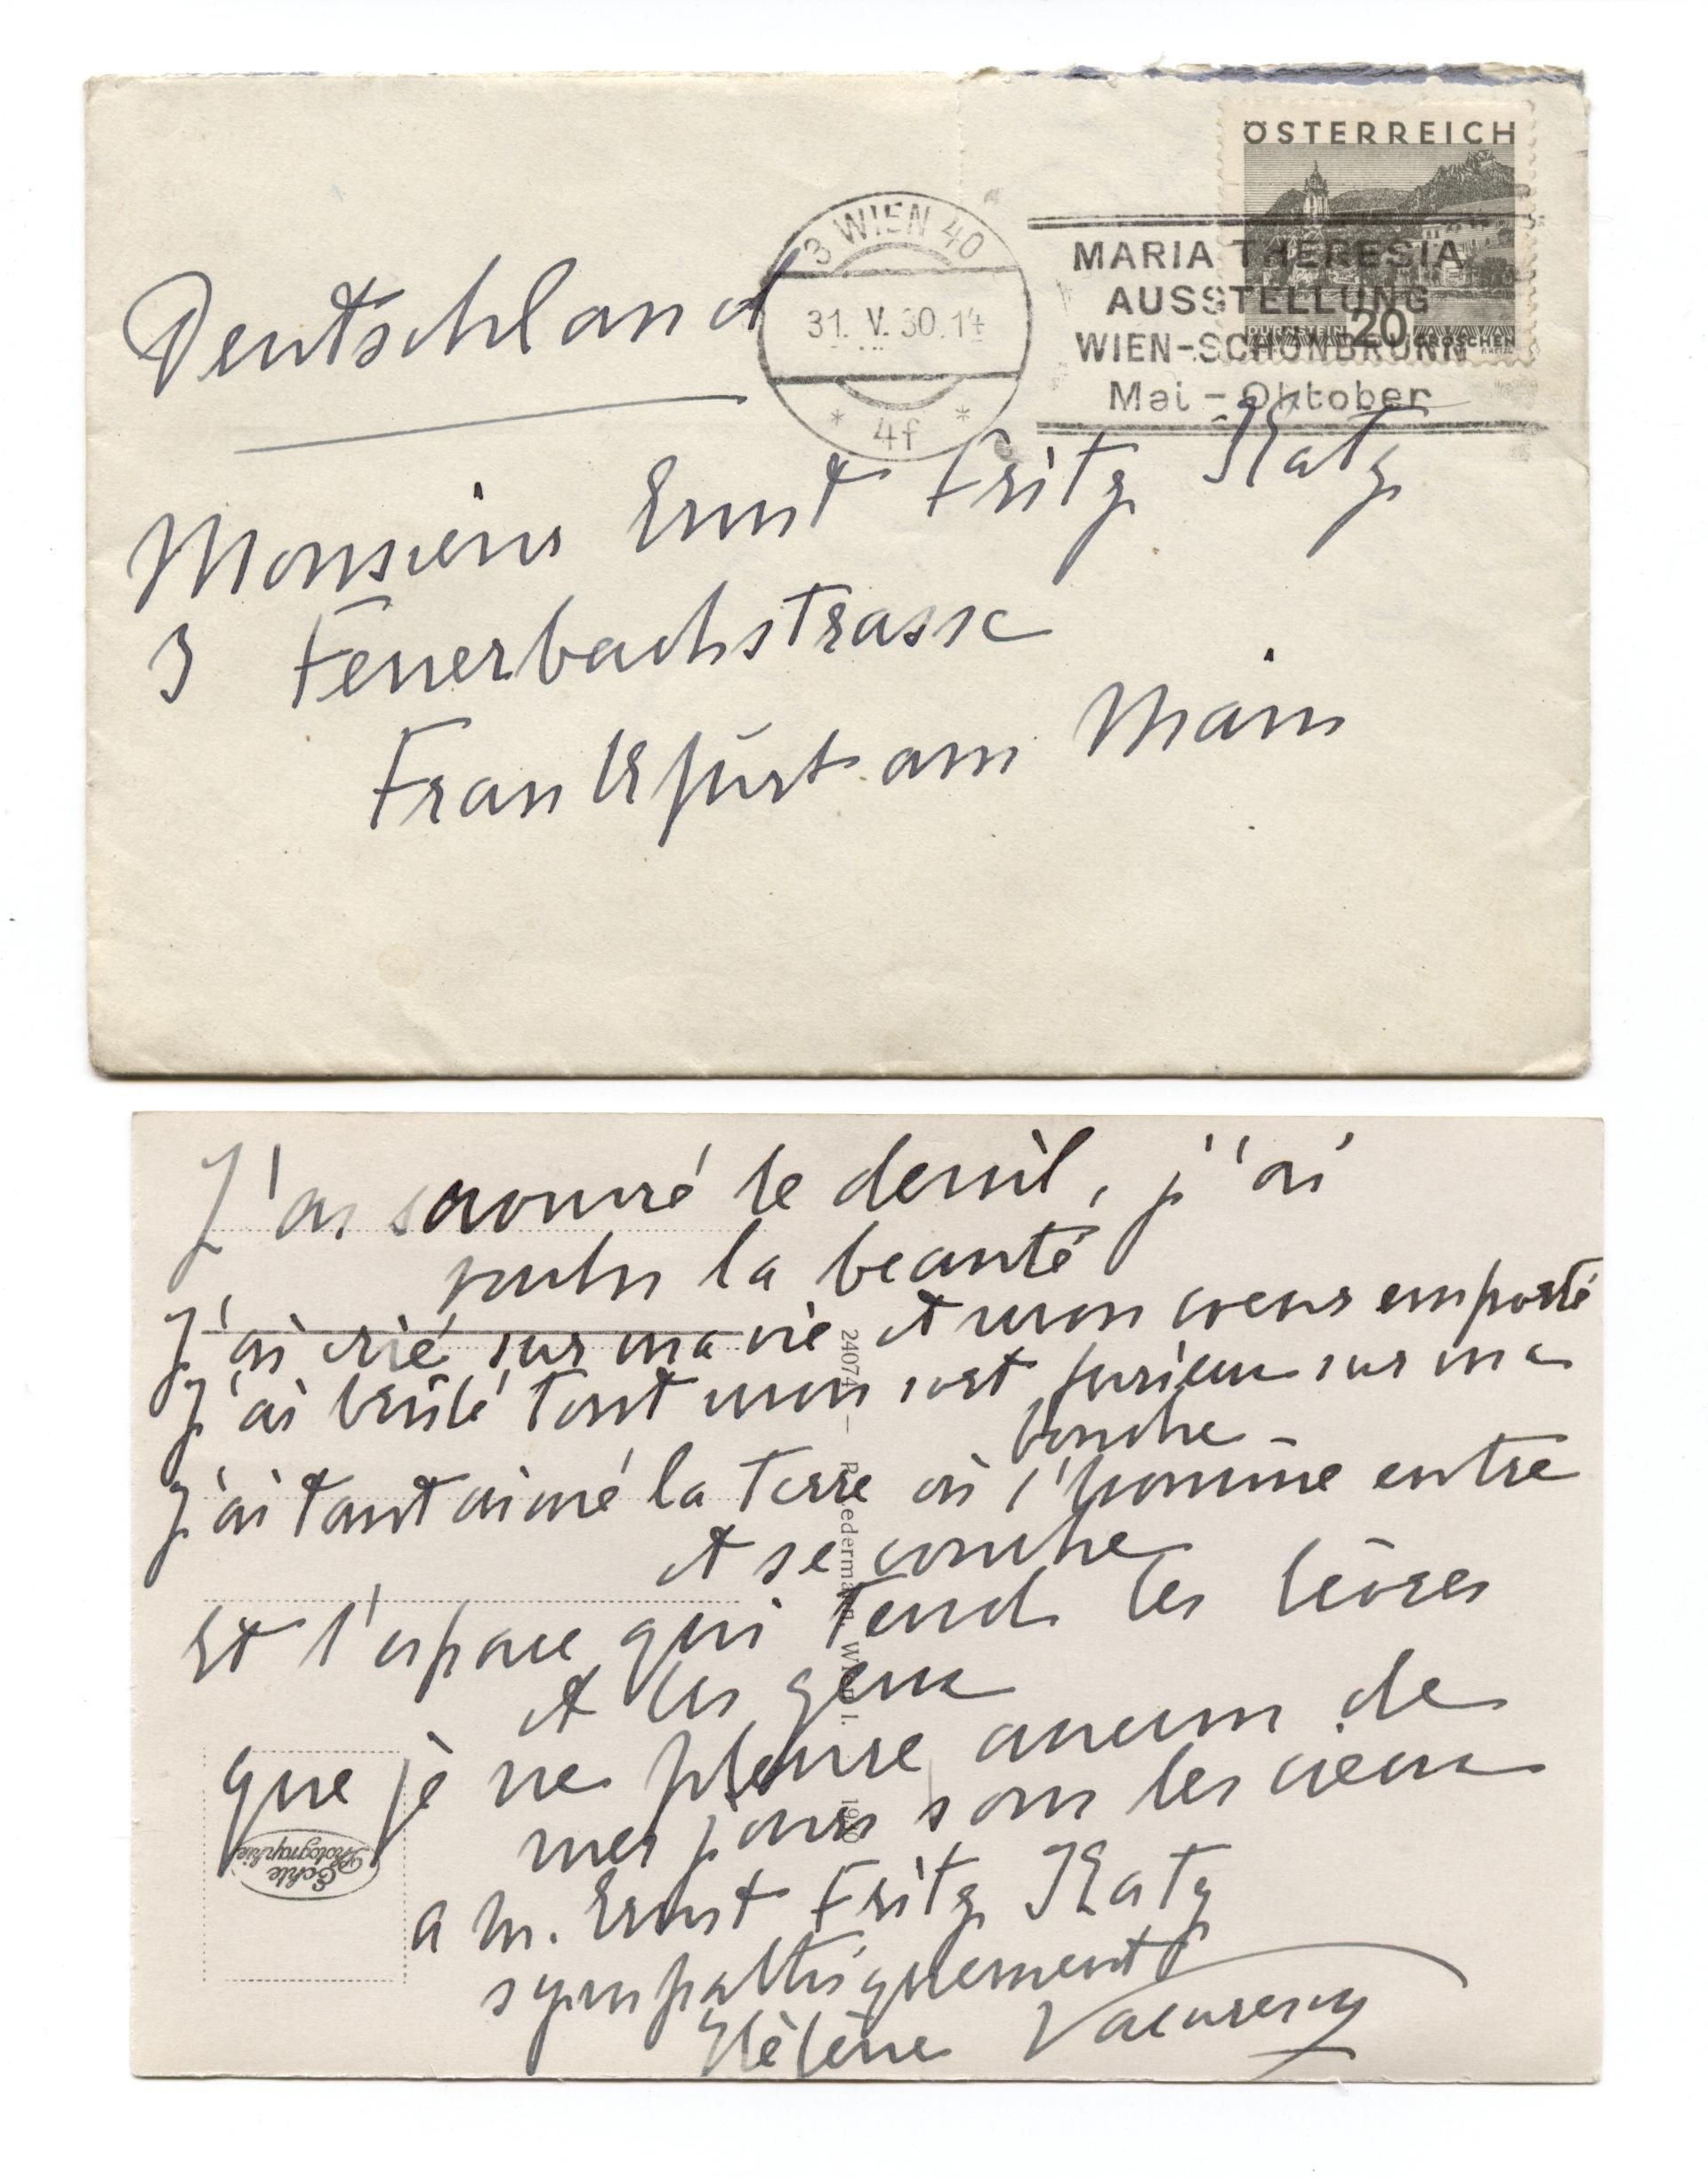 ÖSTERREICH
3 WIEN 40
31. V. 30. 14
* 4f *
MARIA THERESIA
AUSSTELLUNG
WIEN-SCHÖNBRUNN
Mai - Oktober
DÜRNSTEIN 20 GROSCHEN
Deutschland
Monsieur Ernst Fritz Katz
3 Feuerbachstrasse
Frankfurt am Main
J'ai savouré le deuil, j'ai
voulu la beauté
J'ai crié sur ma vie et mon coeur emporté
J'ai brûlé tout mon sort furieux sur ma
bouche -
J'ai tant aimé la terre où l'homme entre
et se couche
Et l'espace qui tend les lèvres
et les yeux
que je ne pleure aucun de
mes jours sous les cieux
a M. Ernst Fritz Katz
sympathiquement
Hélène Vacaresco
24074 – Wien I. 1930
Echte
Photographie